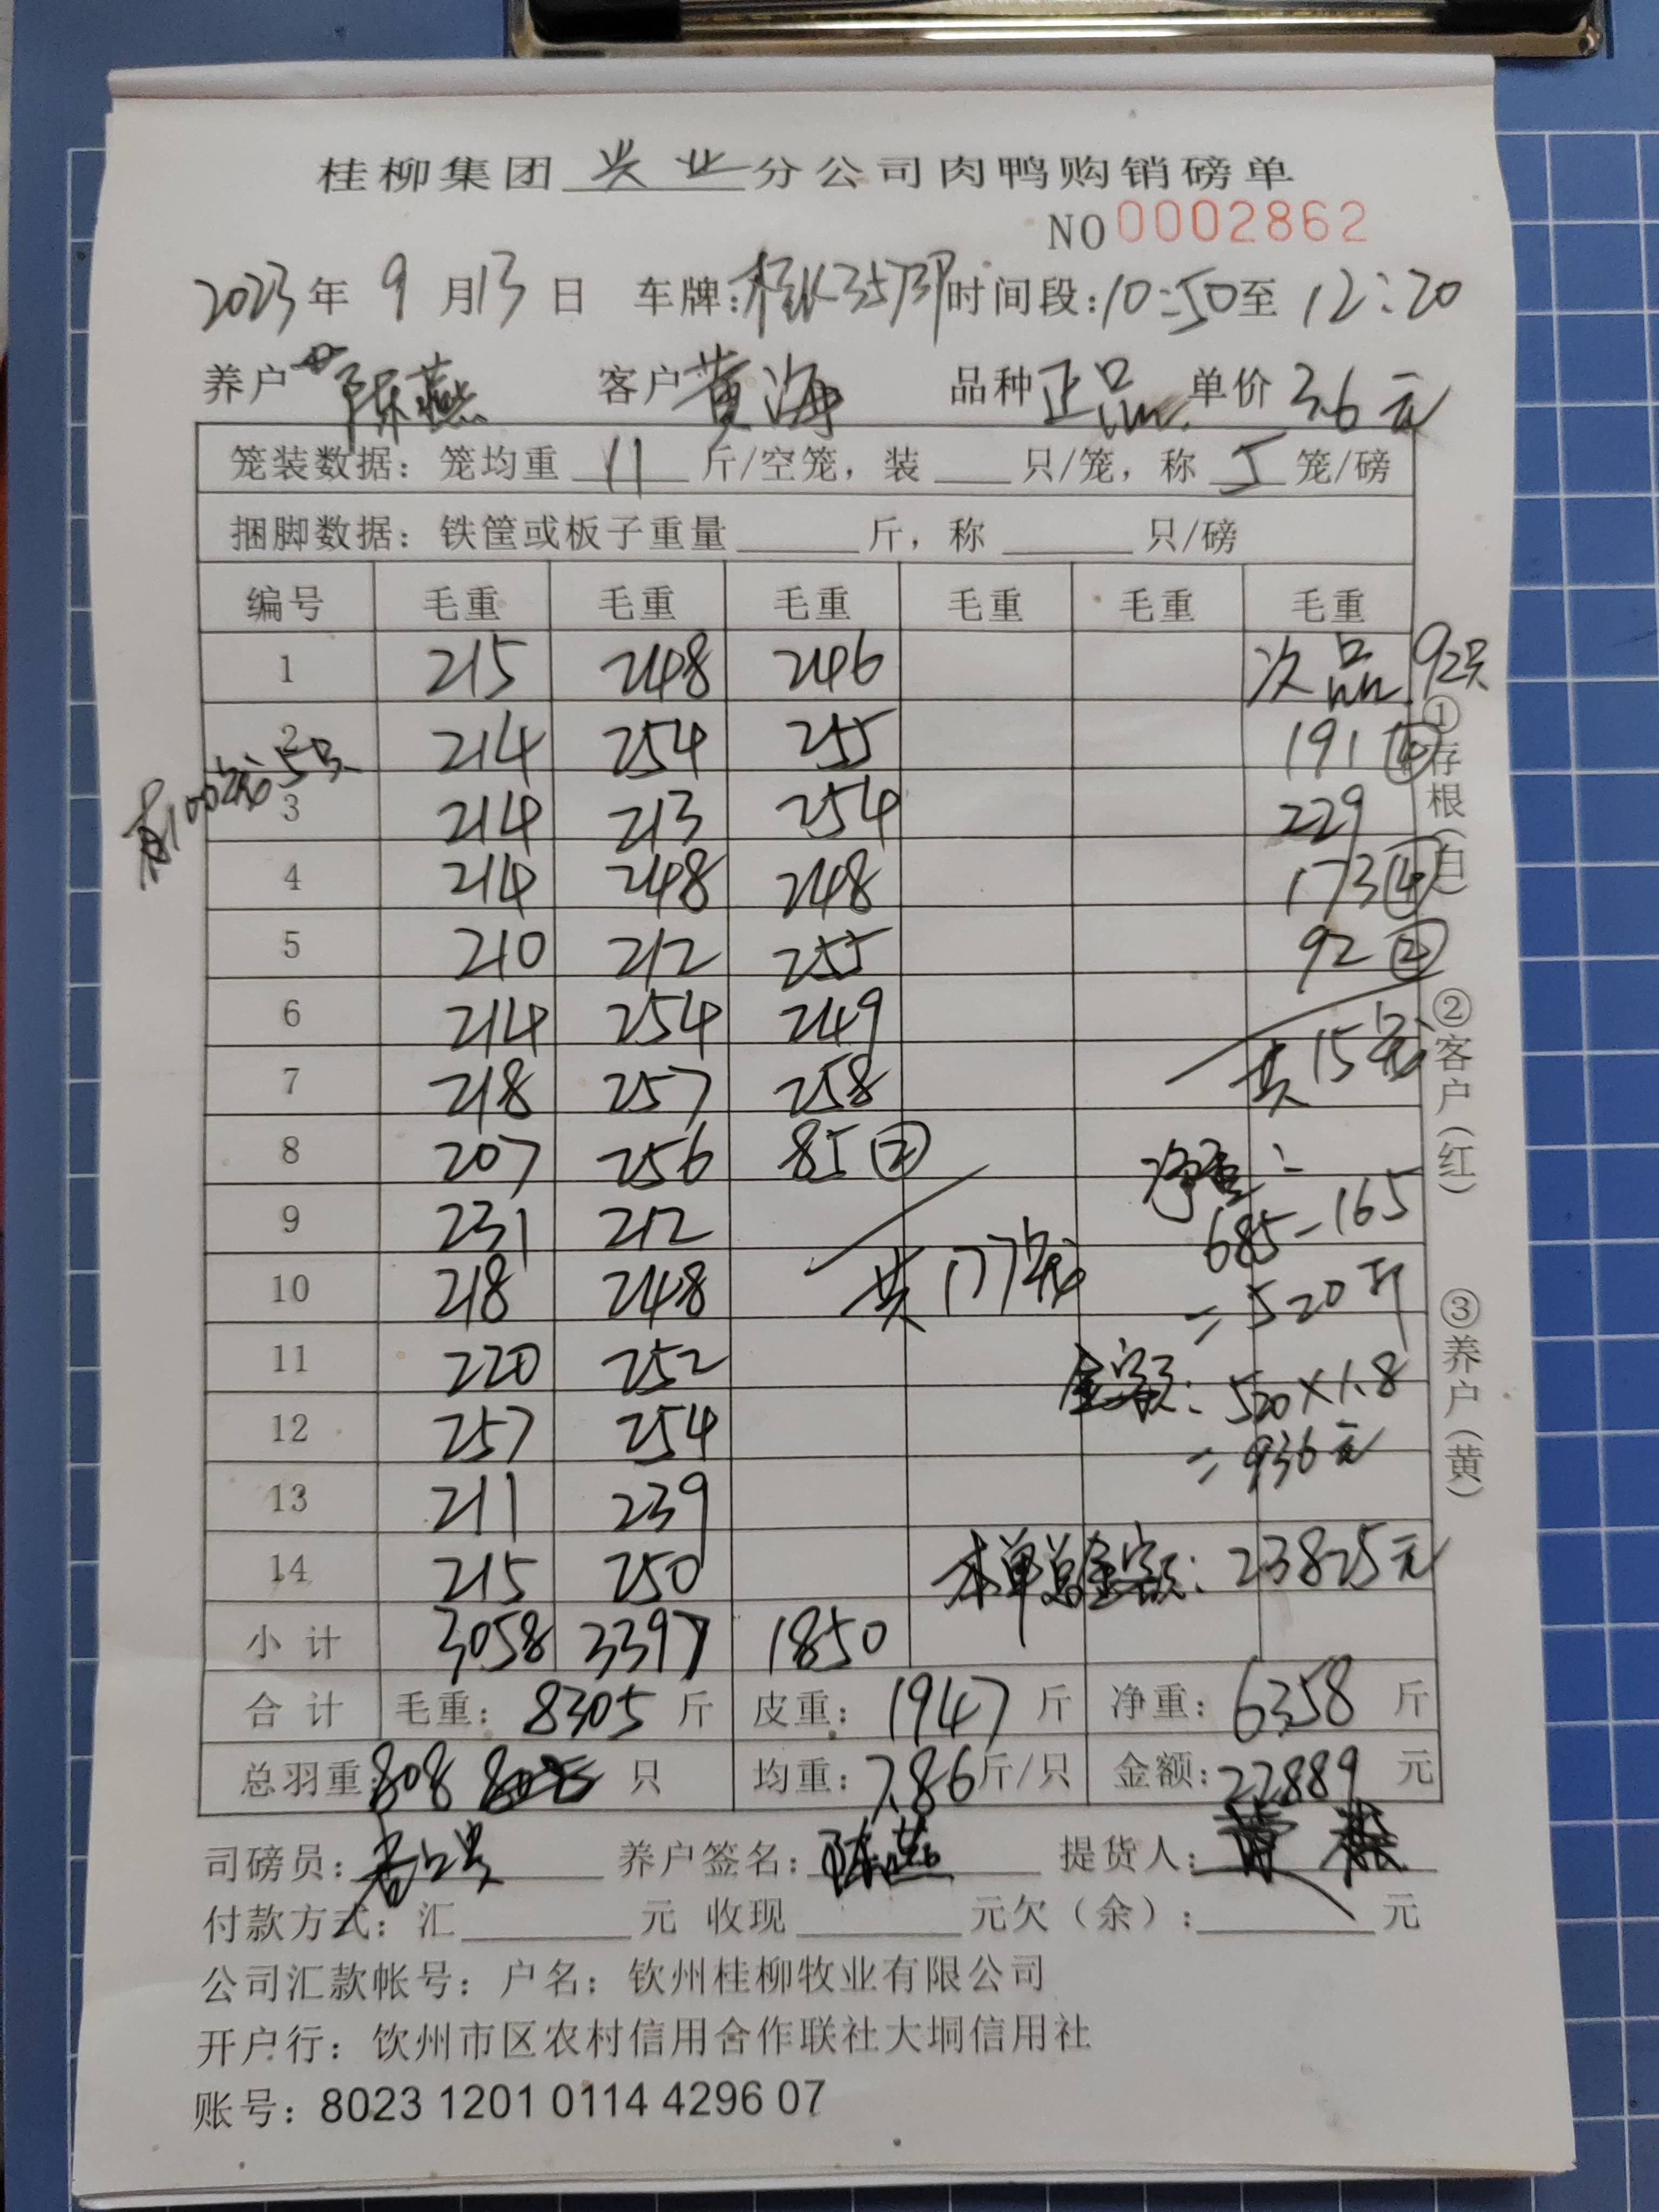 桂柳集团 兴业 分公司肉鸭购销磅单
NO 0002862
2023年 9月13日 车牌:桂K357 时间段:10:50至12:20
养户 陈燕 客户 黄海 品种 正品 单价 3.6元
笼装数据: 笼均重 11 斤/空笼, 装 只/笼, 称 5 笼/磅
捆脚数据: 铁筐或板子重量 斤, 称 只/磅
编号 毛重 毛重 毛重 毛重 毛重 毛重
1 215 248 246 次品 92只
2 214 254 255 191④
3 214 213 254 229
4 214 248 248 173④
5 210 212 255 92②
6 214 254 249 共15笼
7 218 257 258
8 207 256 85② 净重:
9 231 212 685-165
10 218 248 共177笼 =520斤
11 220 252 金额:520×1.8
12 257 254 =936元
13 211 239
14 215 250 本单总金额:23825元
小计 3058 3397 1850
合计 毛重: 8305 斤 皮重: 1947 斤 净重: 6358 斤
总羽重: 808 只 均重: 7.86 斤/只 金额: 22889 元
司磅员: 养户签名: 陈燕 提货人:
付款方式: 汇 元 收现 元欠(余): 元
公司汇款帐号: 户名: 钦州桂柳牧业有限公司
开户行: 钦州市区农村信用合作联社大垌信用社
账号: 8023 1201 0114 4296 07
①存根(白)
②客户(红)
③养户(黄)